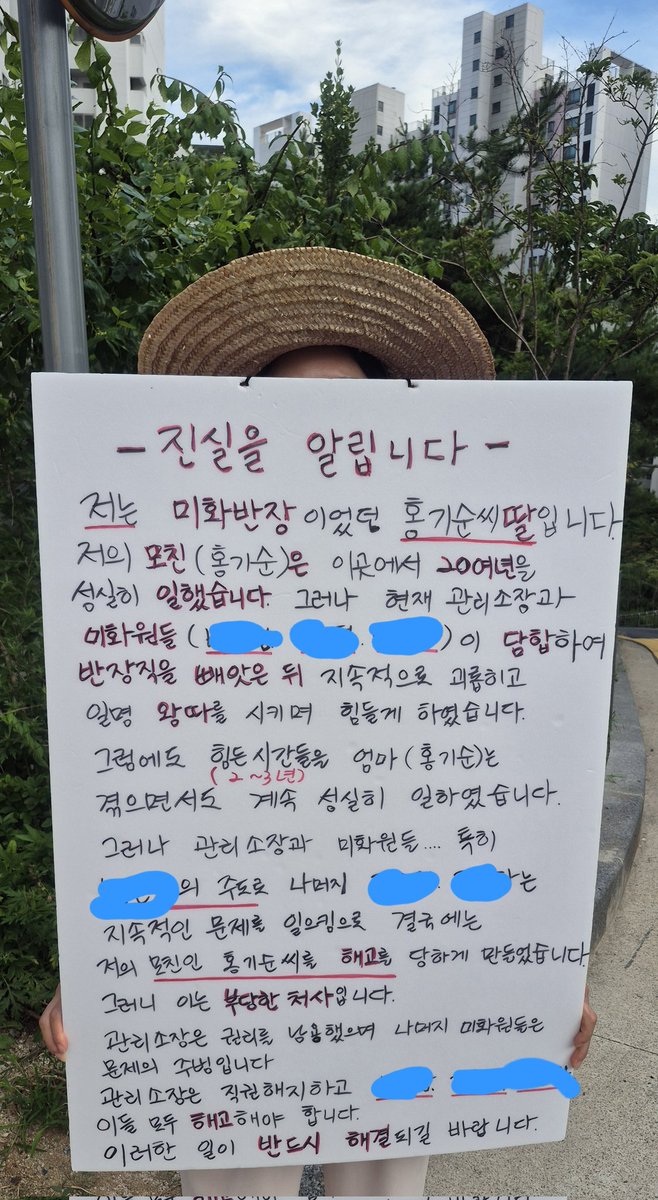 - 진실을 알립니다 -
저는 미화반장이었던 홍기순씨딸입니다
저의 모친(홍기순)은 이곳에서 20여년을
성실히 일했습니다. 그러나 현재 관리소장과
미화원들( )이 담합하여
반장직을 빼앗은 뒤 지속적으로 괴롭히고
일명 왕따를 시키며 힘들게 하였습니다.
그럼에도 힘든시간들을 엄마(홍기순)는
(2~3년)
겪으면서도 계속 성실히 일하였습니다.
그러나 관리소장과 미화원들.... 특히
의 주도로 나머지 는
지속적인 문제를 일으킴으로 결국에는
저의 모친인 홍기순씨를 해고를 당하게 만들었습니다.
그러니 이는 부당한 처사입니다.
관리소장은 권리를 남용했으며 나머지 미화원들은
문제의 주범입니다
관리소장은 직권해지하고
이들 모두 해고해야 합니다.
이러한 일이 반드시 해결되길 바랍니다.